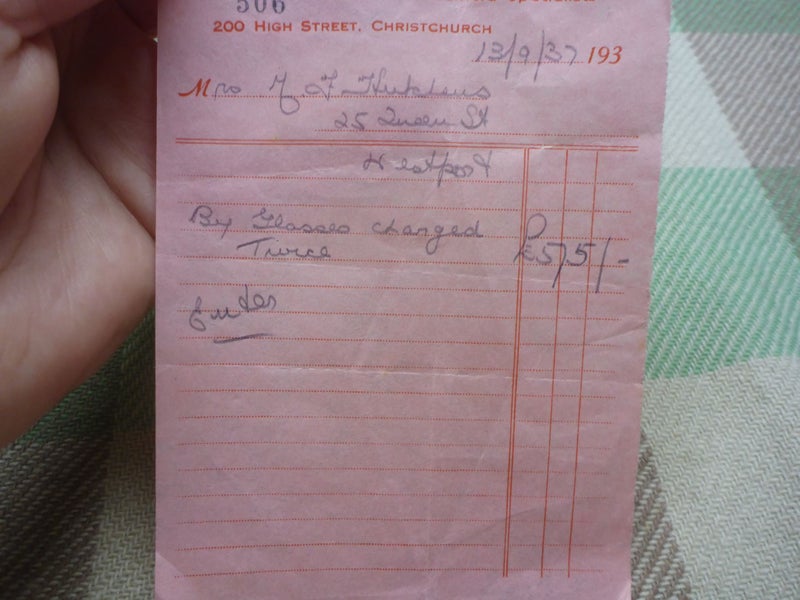 506
200 HIGH STREET, CHRISTCHURCH
13/9/37 193
Mrs
25 Queen St
Westport
By Glasses changed
Twice £5/5/-